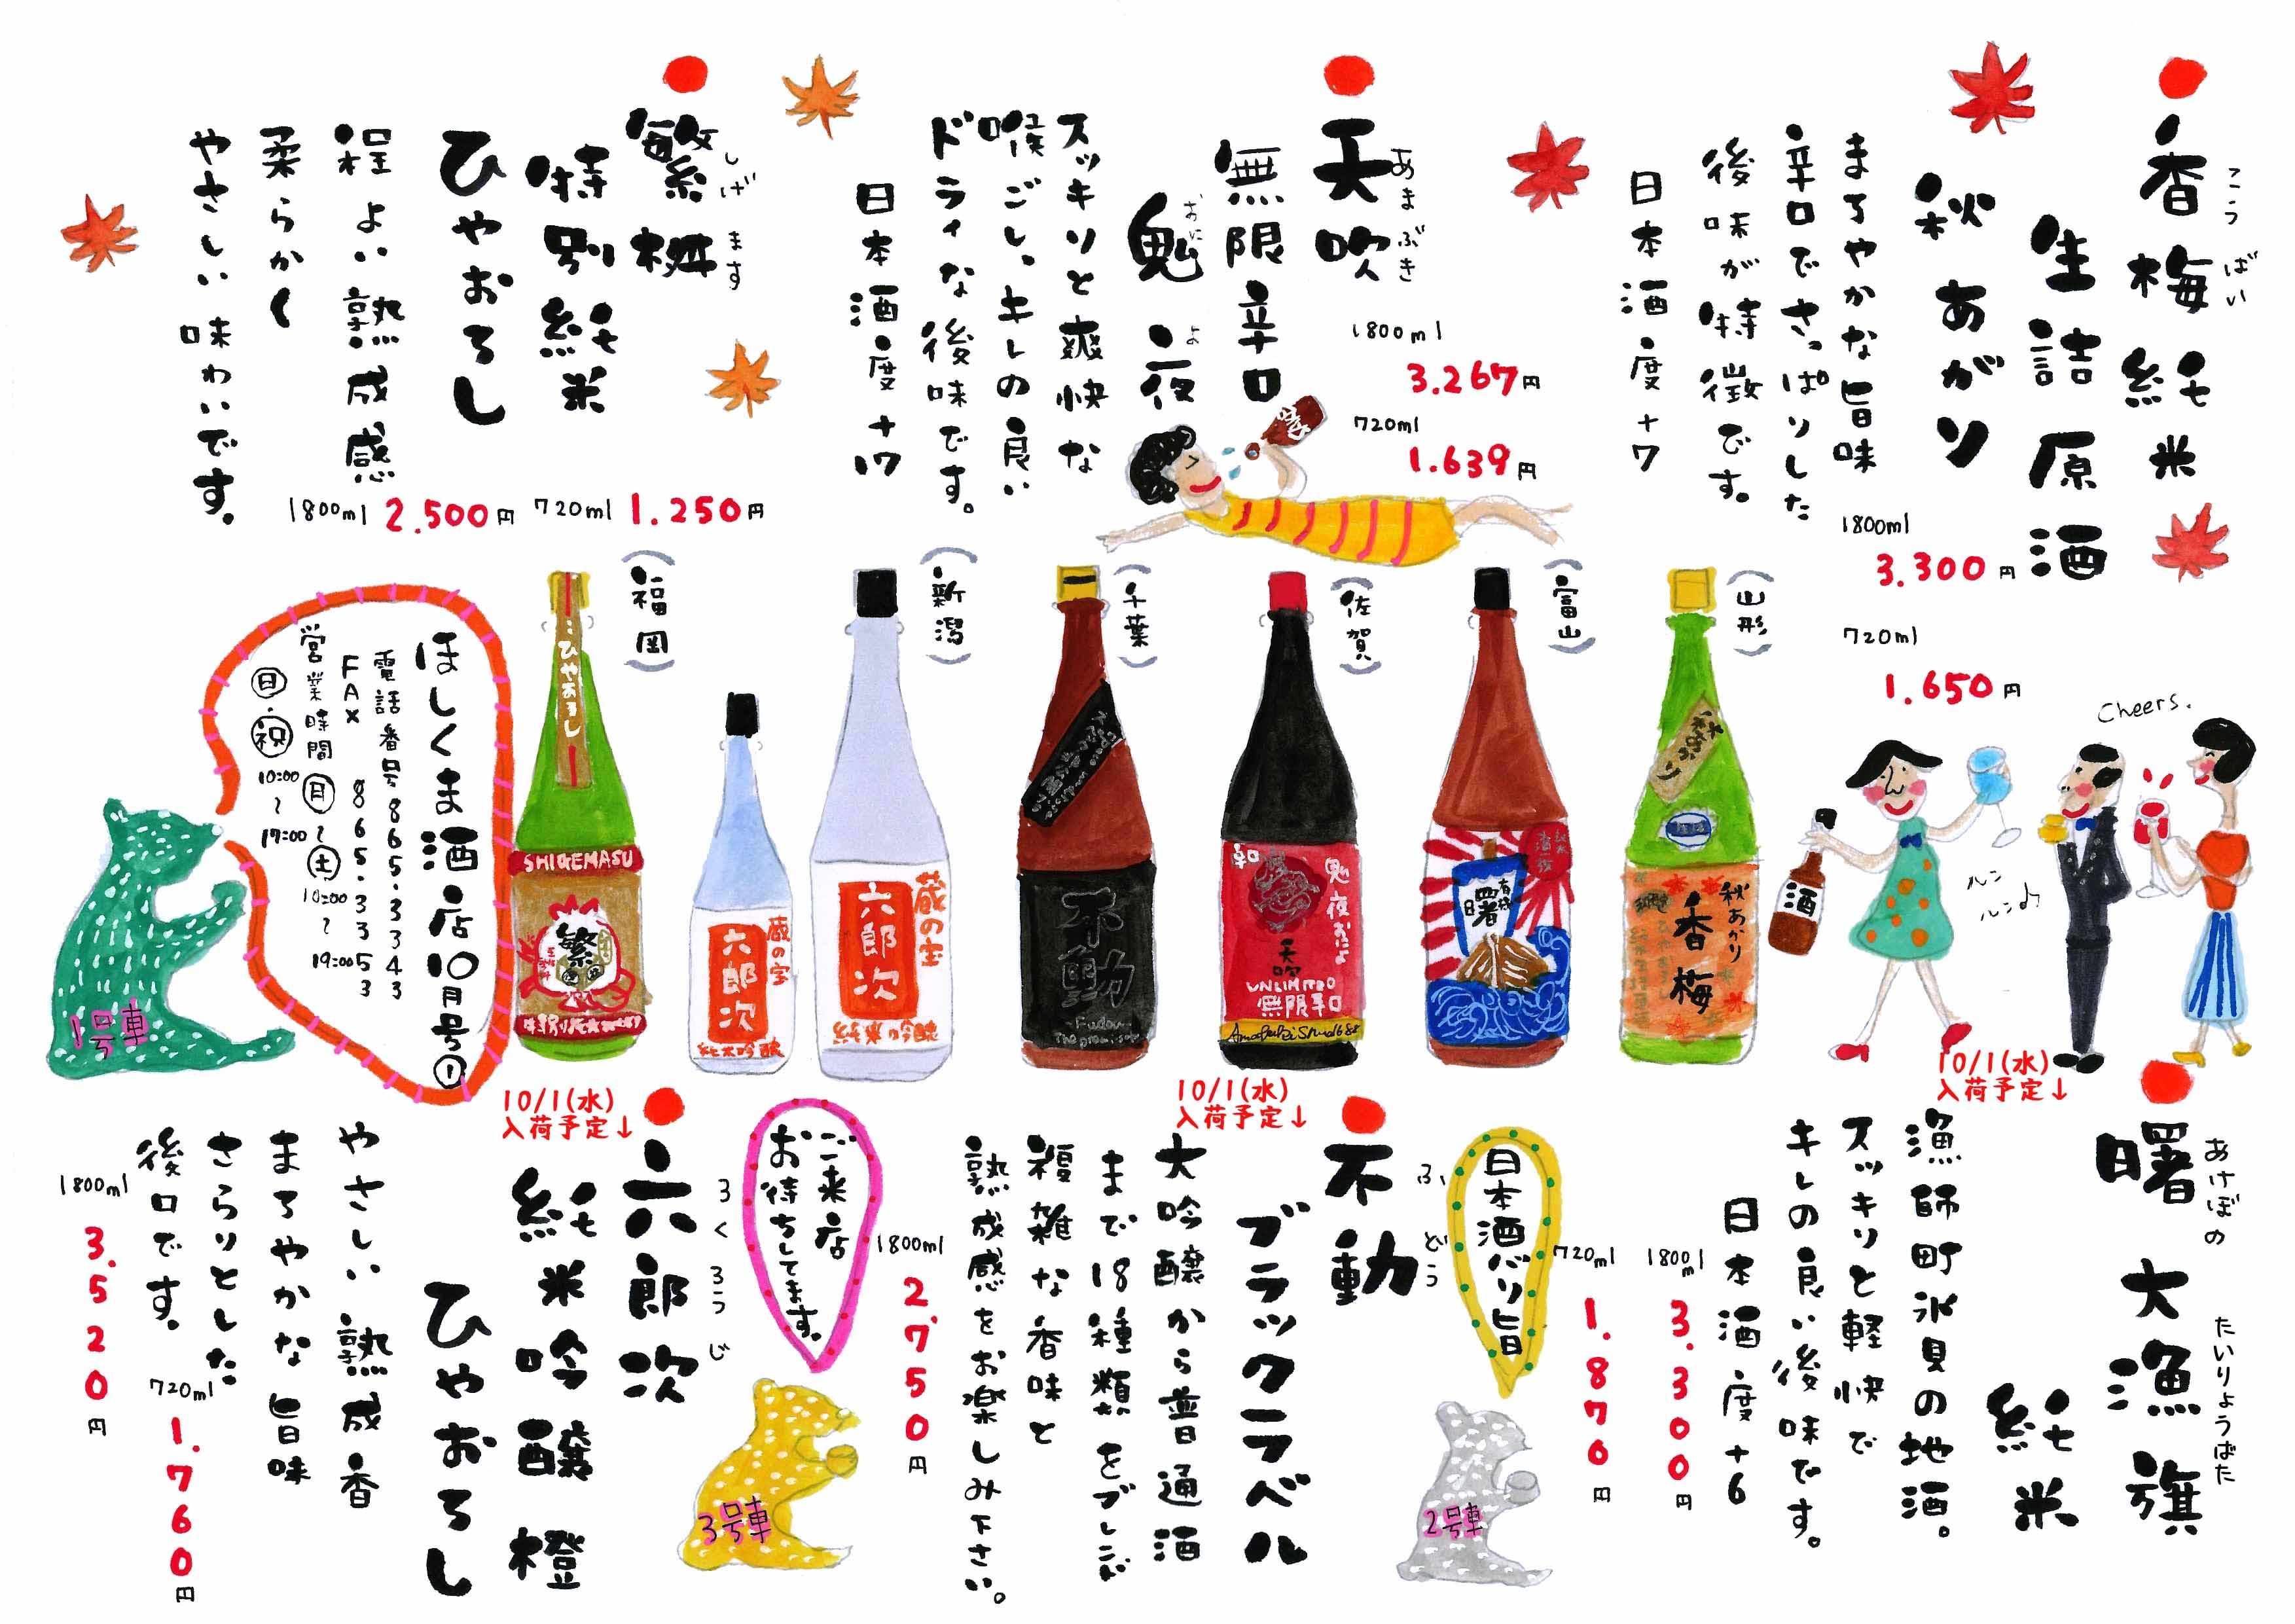 香梅純米
こうばい
生詰原酒
秋あがり
まろやかな旨味
辛口でさっぱりした
後味が特徴です。
日本酒度+7
1800ml
3.300円
720ml
1.650円
天吹
あまぶき
無限辛口
鬼夜
おによ
スッキリと爽快な
喉ごし、キレの良い
ドライな後味です。
日本酒度+17
1800ml
3.267円
720ml
1.639円
繁桝
しげます
特別純米
ひやおろし
程よい熟成感
柔らかく
やさしい味わいです。
1800ml 2.500円
720ml 1.250円
(山形)
(富山)
(佐賀)
(千葉)
(新潟)
(福岡)
Cheers.
ルン
ルン♪
酒
秋あがり
秋あがり
香梅
曙
鬼夜おによ
辛口
天吹
UNLIMITED
無限辛口
不動
Fudou
蔵の宝
六郎次
純米吟醸
蔵の宝
六郎次
純米吟醸
ひやおろし
SHIGEMASU
繁
ほしくま酒店10月号①
電話番号865.3343
FAX 865.3353
営業時間 月〜土 10:00〜19:00
日・祝 10:00〜17:00
1号車
10/1(水)
入荷予定↓
曙 大漁旗
あけぼの たいりょうばた
純米
漁師町氷見の地酒。
スッキリと軽快で
キレの良い後味です。
日本酒度+6
1800ml
3.300円
720ml
1.870円
日本酒バリ旨
2号車
10/1(水)
入荷予定↓
不動
ふどう
ブラックラベル
大吟醸から普通酒
まで18種類をブレンド
複雑な香味と
熟成感をお楽しみ下さい。
1800ml
2.750円
ご来店
お待ちしてます。
3号車
10/1(水)
入荷予定↓
六郎次
ろくろうじ
純米吟醸 橙
ひやおろし
やさしい熟成香
まろやかな旨味
さらりとした
後口です。
1800ml
3.520円
720ml
1.760円